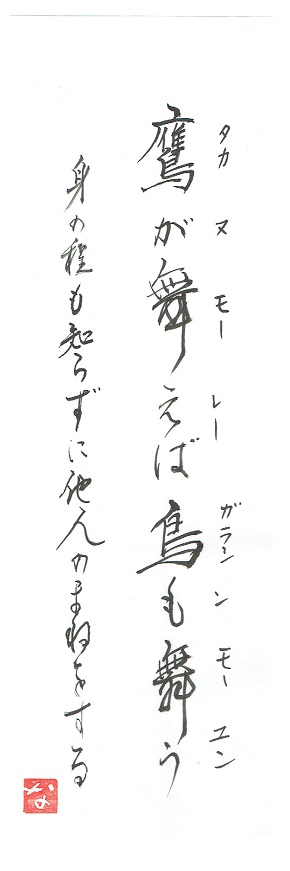 タカ ヌ モー レー ガラシ ン モー ユン
鷹が舞えば烏も舞う
身の程も知らずに他人のまねをする